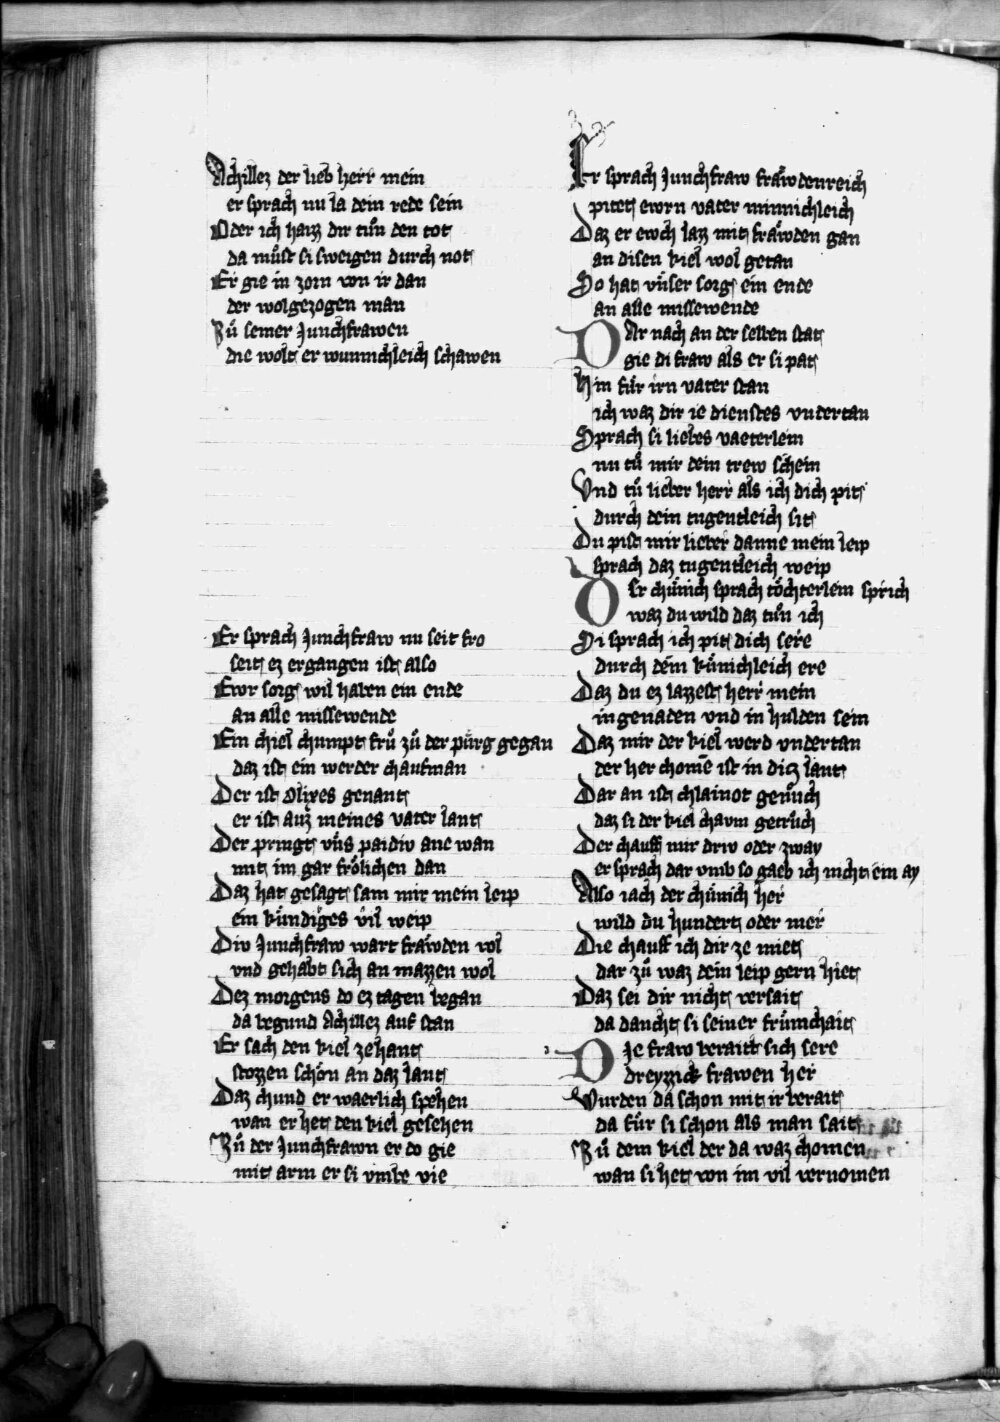 Achillez der lieb herr mein
er sprach nu la dein rede sein
Oder ich haizz dir tuͦn den tot
da muͦst si sweigen durch not
Er gie in zorn von ir dan
der wolgezogen man
Zuͦ seiner Junchfrawen
die wolt er wunnichleich schawen
Er sprach Junchfraw nu seit fro
seit ez ergangen ist also
Ewr sorg wil haben ein ende
an alle missewende
Ein chiel chumpt fruͦ zuͦ der purg gegan
daz ist ein werder chaufman
Der ist Olixes genant
er ist auz meines vater lant
Der pringt vns paidiv ane wan
mit im gar froͤlichen dan
Daz hat gesagt sam mir mein leip
ein kuͤndiges vil weip
Div Junchfraw wart fraͤwden vol
vnd gehabt sich an mazzen wol
Dez morgens do ez tagen began
da begund Achillez auf stan
Er sach den kiel zehant
stozzen schon an daz lant
Daz chund er waerlich spehen
wan er het den kiel gesehen
Zuͦ der Junchfrawn er do gie
mit arm er si vmbe vie
Er sprach Junchfraw fraͤwdenreich
pitet ewrn vater minnichleich
Daz er ewch lazz mit fraͤwden gan
an disen kiel wol getan
So hat vnser sorg ein ende
an alle missewende
DAr nach an der selben stat
gie di fraw als er si pat
Hin fuͤr irn vater stan
ich waz dir ie dienstes vndertan
Sprach si liebes vaeterlein
nu tuͦ mir dein trew schein
Vnd tuͦ lieber herr als ich dich pit
durch dein tugentleich sit
Du pist mir lieber danne mein leip
sprach daz tugentleich weip
DEr chuͤnich sprach toͤchterlein sprich
waz du wild daz tuͦn ich
Si sprach ich pit dich sere
durch dein kuͤnichleich ere
Daz du ez lazzest herr mein
in genaden vnd in hulden sein
Daz mir der kiel werd vndertan
der her chomē ist in ditz lant
Dar an ist chlainot genuͦch
daz si der kiel chavm getruͦch
Der chauff mir driv oder zway
er sprach dar vmb so gaeb ich nicht ein ay
Also iach der chuͤnich her
wild du hundert oder mer
Die chauff ich dir ze miet
dar zuͦ waz dein leip gern hiet
Daz sei dir nicht versait
da daucht si seiner fruͤmchait
DIe fraw berait sich sere
dreyzzick frawen her
Wurden da schon mit ir berait
da fuͤr si schon als man sait
Zuͦ dem kiel der da waz chomen
wan si het von im vil vernomen